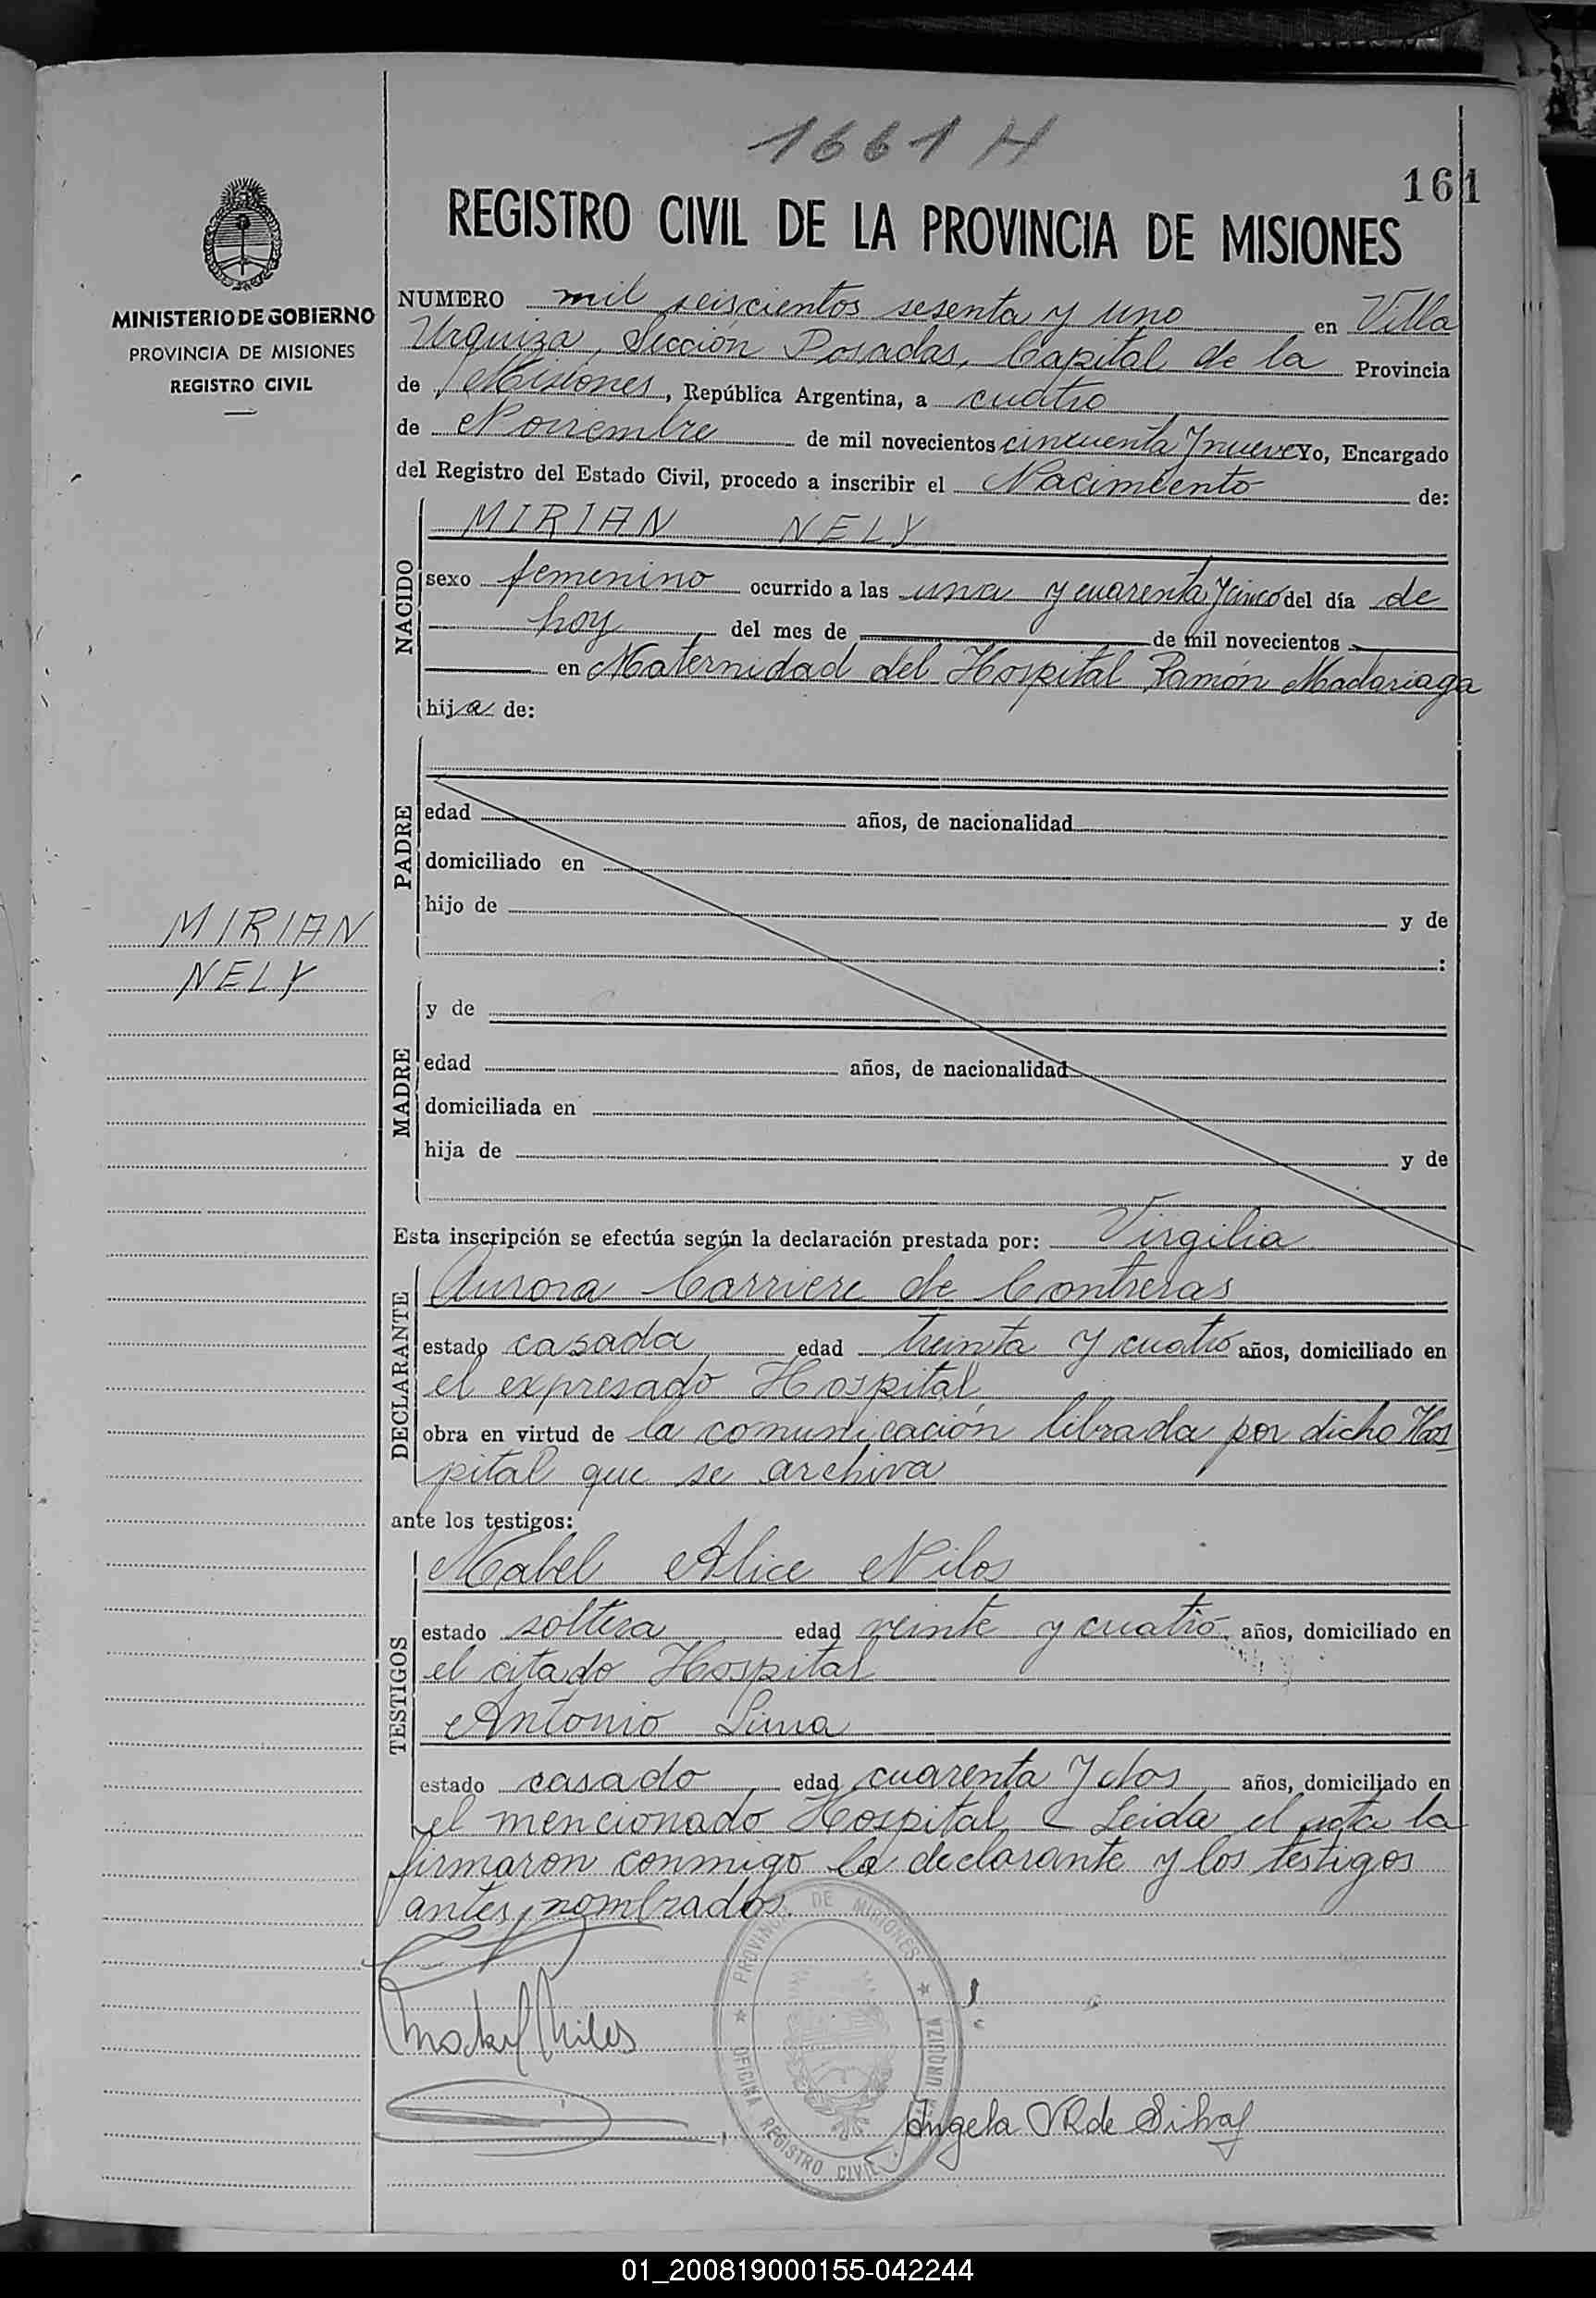 1661 H
161
REGISTRO CIVIL DE LA PROVINCIA DE MISIONES
MINISTERIO DE GOBIERNO
PROVINCIA DE MISIONES
REGISTRO CIVIL
NUMERO mil seiscientos sesenta y uno en Villa
Urquiza, Sección Posadas, Capital de la Provincia
de Misiones, República Argentina, a cuatro
de Noviembre de mil novecientos cincuenta y nueve Yo, Encargado
del Registro del Estado Civil, procedo a inscribir el Nacimiento de:
NACIDO
MIRIAN NELY
sexo femenino ocurrido a las una y cuarenta y cinco del día de
hoy del mes de de mil novecientos
en Maternidad del Hospital Ramón Madariaga
hija de:
PADRE
edad años, de nacionalidad
domiciliado en
hijo de y de
:
MIRIAN
NELY
MADRE
y de
edad años, de nacionalidad
domiciliada en
hija de y de
Esta inscripción se efectúa según la declaración prestada por: Virgilia
DECLARANTE
Aurora Carriere de Contreras
estado casada edad treinta y cuatro años, domiciliado en
el expresado Hospital
obra en virtud de la comunicación librada por dicho Hos
pital que se archiva
ante los testigos:
TESTIGOS
Mabel Alice Nilos
estado soltera edad veinte y cuatro años, domiciliado en
el citado Hospital
Antonio Lima
estado casado edad cuarenta y dos años, domiciliado en
el mencionado Hospital Leida el acta la
firmaron conmigo la declarante y los testigos
antes nombrados.
PROVINCIA DE MISIONES
OFICINA REGISTRO CIVIL
URQUIZA
Angela de Silva
01_200819000155-042244